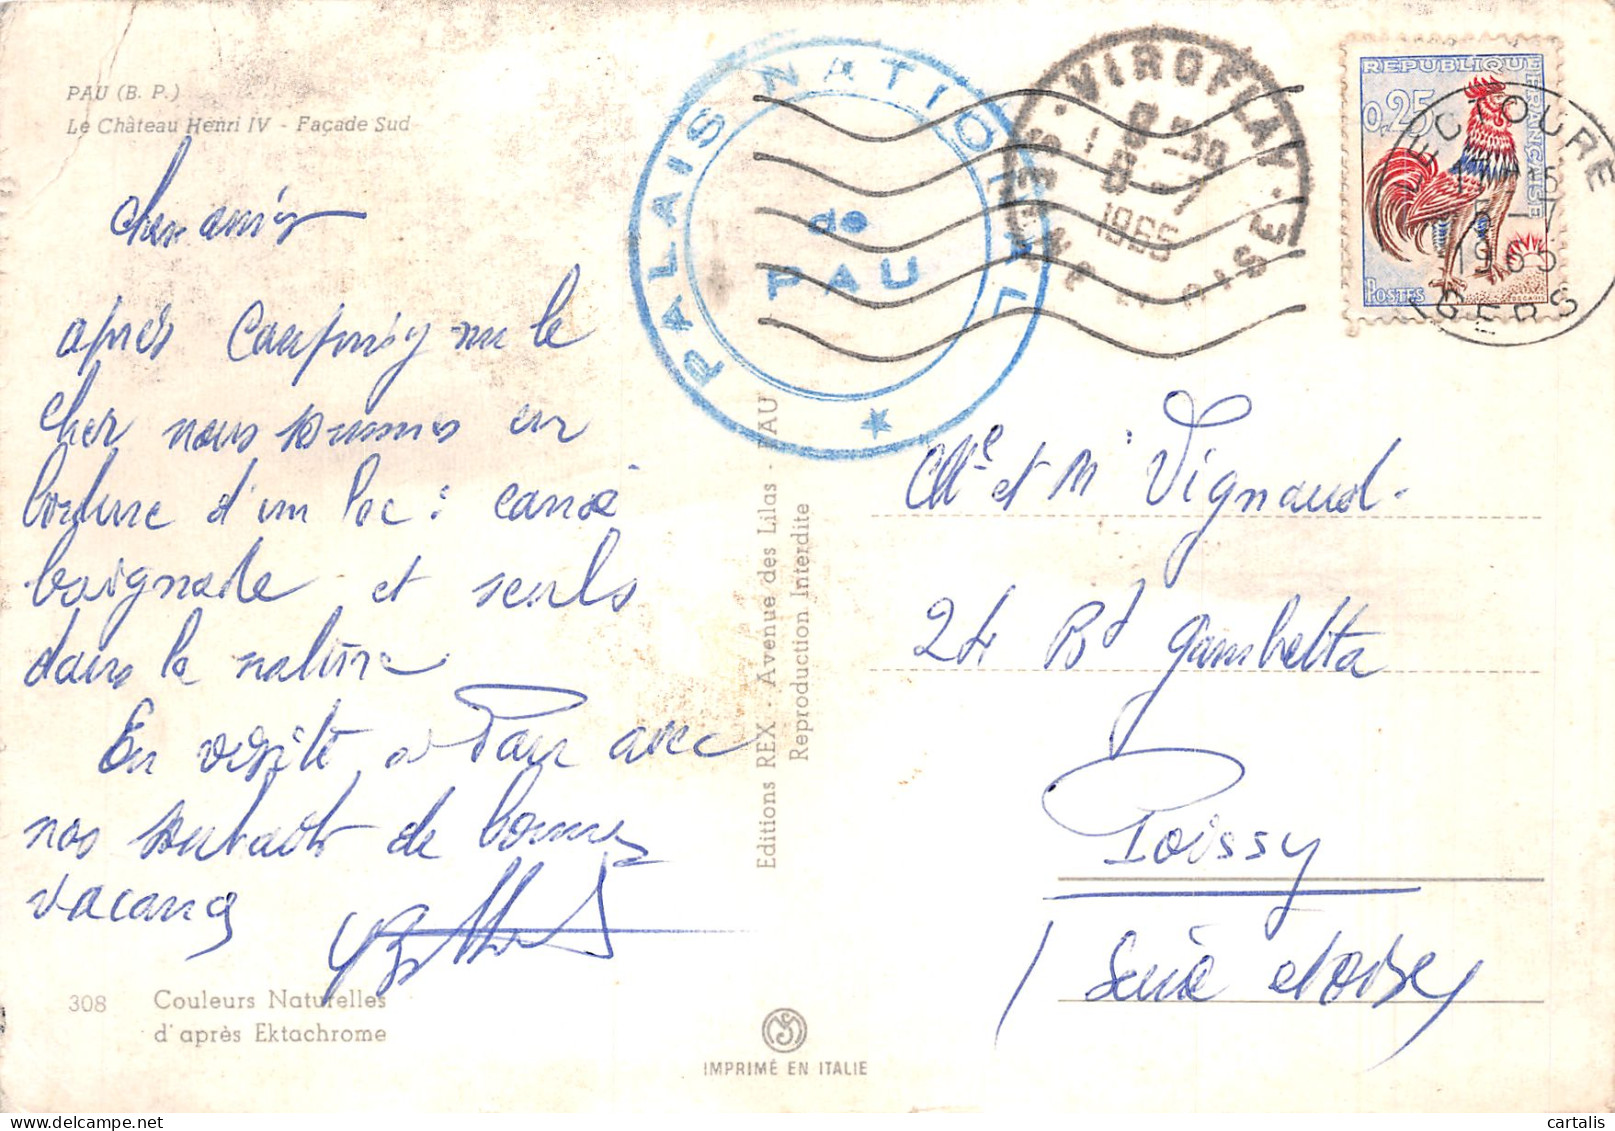 PAU (B. P.)
Le Château Henri IV - Façade Sud
cher amis
après Camping sur le
cher nous sommes en
bordure d'un lac : canoë
baignade et seuls
dans la nature
En visite à Pau avec
nos souhaits de bonnes
vacances
308 Couleurs Naturelles
d'après Ektachrome
PALAIS NATIONAL
de
PAU
Editions REX - Avenue des Lilas - PAU
Reproduction Interdite
IMPRIMÉ EN ITALIE
VIROFLAY
SEINE ET OISE
1965
REPUBLIQUE FRANÇAISE
0,25
POSTES
LECTOURE
1965
GERS
Me et Mr Vignaud.
24 Bd Gambetta
Poissy
(Seine et Oise)
cartalis